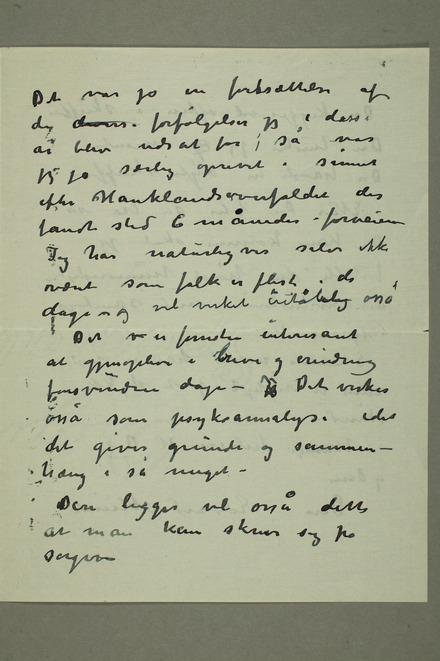 Det var jo en fortsættelse af
de forfølgelser jeg i disse
år blev udsat for / så var
jeg jo særlig oprevet i sinnet
efter Hauklandsoverfaldet des
fandt sted 6 måneder forveien
Jeg har naturligvis selv ikk
været som folk er flest i de
dage og vel virket utålelig også
Det er forresten interesant
at gjenopleve i breve og erindring
forsvundne dage – Det virker
også som psykoanalyse idet
det giver grunde og sammen–
hæng i så meget –
Deri ligger vel også dette
at man kan skrive sig fra
sorgen